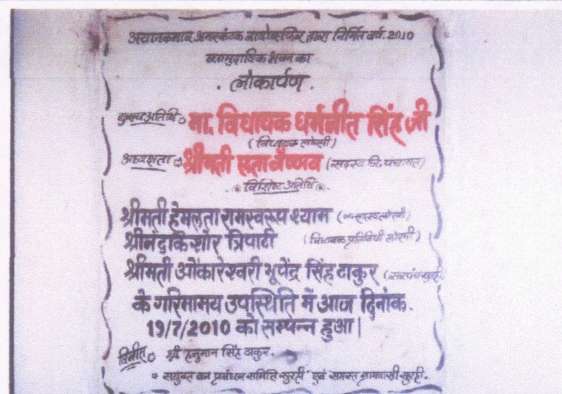 अचानकमार अमरकंटक बायोस्फियर द्वारा निर्मित वर्ष. 2010
सामुदायिक भवन का
लोकार्पण.
मुख्य अतिथि मा. विधायक धर्मजीत सिंह जी
(विधायक लोरमी)
अध्यक्षता श्रीमती लता वैष्णव (सदस्य जि. पंचायत)
विशिष्ट अतिथि
श्रीमती हेमलता रामस्वरूप श्याम
श्री नंदकिशोर त्रिपाठी (विधायक प्रतिनिधी लोरमी)
श्रीमती ओंकारेश्वरी भूपेंद्र सिंह ठाकुर (सरपंच
के गरिमामय उपस्थिति में आज दिनांक.
19/7/2010 को सम्पन्न हुआ |
विनीत श्री हनुमान सिंह ठाकुर.
संयुक्त वन प्रबंधन समिति सुरही एवं समस्त ग्रामवासी सुरही.